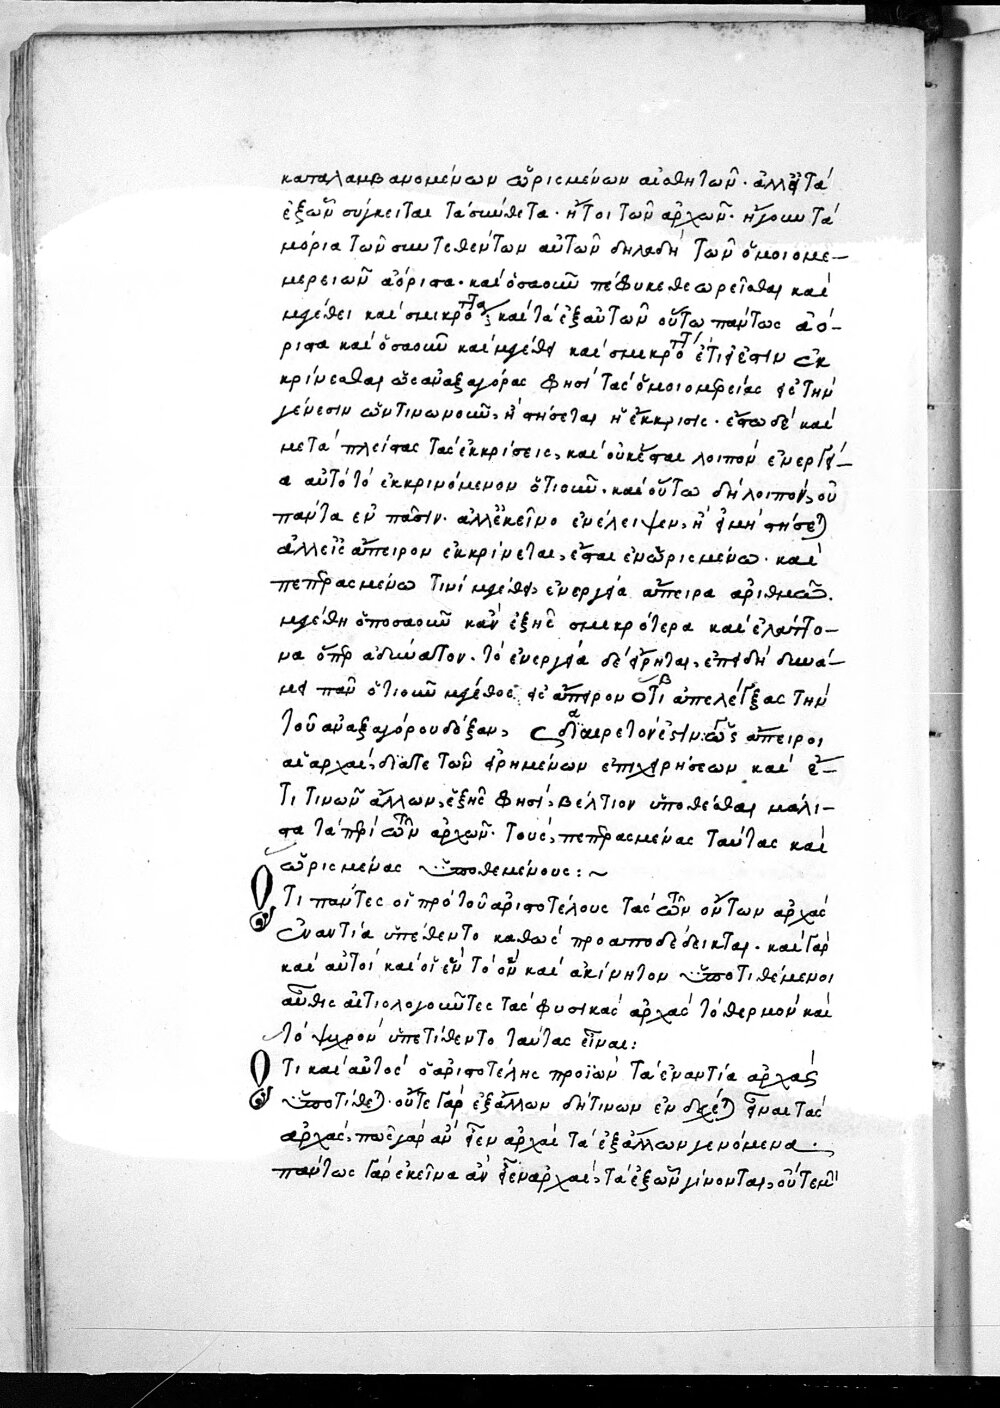 καταλαμβανομένων ὡρισμένων αἰσθητῶν · ἀλλὰ τὰ
ἐξ ὧν σύγκειται τὰ σύνθετα · ἤτοι τῶν ἀρχῶν · ἤγουν τὰ
μόρια τῶν συντεθέντων αὐτῶν δηλαδὴ τῶν ὁμοιομε–
μερειῶν ἀόριστα · καὶ ὁσαοῦν πέφυκε θεωρεῖσθαι καὶ
μεγέθει καὶ σμικρότητι καὶ τὰ ἐξ αὐτῶν οὕτω πάντως ἀό–
ριστα καὶ ὁσαοῦν καὶ μεγέθει καὶ σμικρότητι ἔτι εἰ ἔστιν ἐκ
κρίνεσθαι ὡς ἀναξαγόρας φησὶ τὰς ὁμοιομερείας εἰς τὴν
γένεσιν ὡντινωνοῦν, ἢ στήσεται ἡ ἔκκρισις · ἔστω δὲ καὶ
μετὰ πλείστας τὰς ἐκκρίσεις, καὶ οὐκ ἔσται λοιπὸν ἐνεργεί–
α αὐτὸ τὸ ἐκκρινόμενον ὁτιοῦν · καὶ οὕτω δὴ λοιπὸν, οὐ
πάντα ἐν πᾶσιν · ἀλλ' ἐκεῖνο ἐνέλειψεν, ἢ εἰ μὴ στήσεται
ἀλλ' εἰς ἄπειρον ἐκκρίνεται, ἔσται ἐν ὡρισμένω · καὶ
πεπερασμένω τινὶ μεγέθει, ἐνεργεία ἄπειρα ἀριθμῶ.
μεγέθη ὁποσαοῦν κἂν ἑξῆς σμικρότερα καὶ ἐλάττο–
να ὅπερ ἀδύνατον · τὸ ἐνεργεία δὲ εἴρηται, ἐπειδὴ δυνά–
μει πᾶν ὁτιοῦν μέγεθος εἰς ἄπειρον διαιρετόν ἐστιν ὅτι ἀπελέγξας τὴν
τοῦ ἀναξαγόρου δόξαν, ὡς ἄπειροι
αἱ ἀρχαὶ, διά τε τῶν εἰρημένων ἐπιχειρήσεων καὶ ἔ–
τι τινῶν ἄλλων, ἑξῆς φησὶ, βέλτιον ὑποθέσθαι μάλι–
στα τὰ περὶ τῶν ἀρχῶν · τοὺς, πεπερασμένας ταύτας καὶ
ὡρισμένας ὑποθεμένους: ~
Ὅτι πάντες οἱ πρὸ τοῦ ἀριστοτέλους τὰς τῶν ὄντων ἀρχὰς
ἐναντία ὑπέθεντο καθὼς προαποδέδεικται · καὶ γὰρ
καὶ αὐτοὶ καὶ οἱ ἓν τὸ ὂν καὶ ἀκίνητον ὑποτιθέμενοι
αὖθις αἰτιολογοῦντες τὰς φυσικὰς ἀρχὰς τὸ θερμὸν καὶ
τὸ ψυχρὸν ὑπετίθεντο ταύτας εἶναι:
Ὅτι καὶ αὐτὸς ὁ ἀριστοτέλης προϊὼν τὰ ἐναντία ἀρχὰς
ὑποτίθεται · οὔτε γὰρ ἐξ ἄλλων δή τινων ἐνδέχεται εἶναι τὰς
ἀρχάς, πῶς γὰρ ἂν εἶεν ἀρχαὶ τὰ ἐξ ἄλλων γενόμενα ·
πάντως γὰρ ἐκεῖνα ἂν εἶεν ἀρχαὶ, τὰ ἐξ ὧν γίνονται, οὔτε μὴν